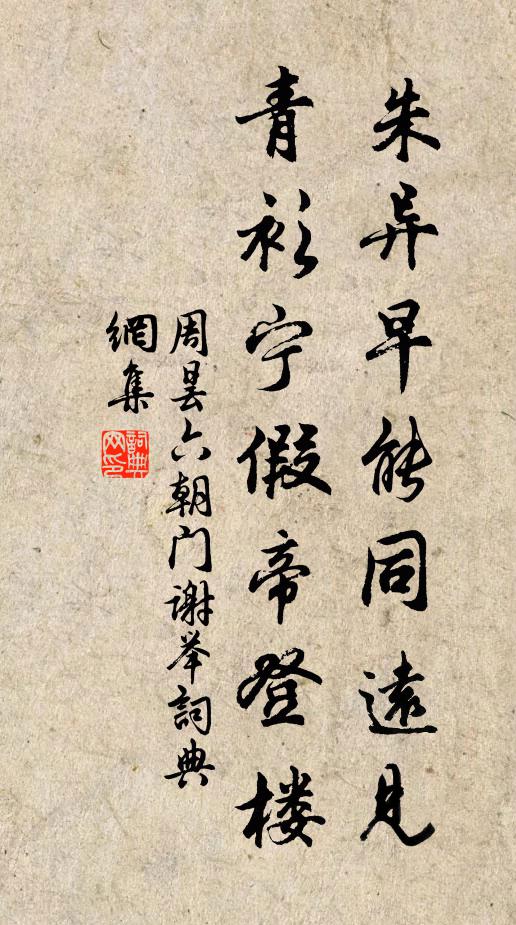 朱异早能同遠見
青衫宁假帝登楼
周昙六朝门谢举詞典
網集
詞典网印